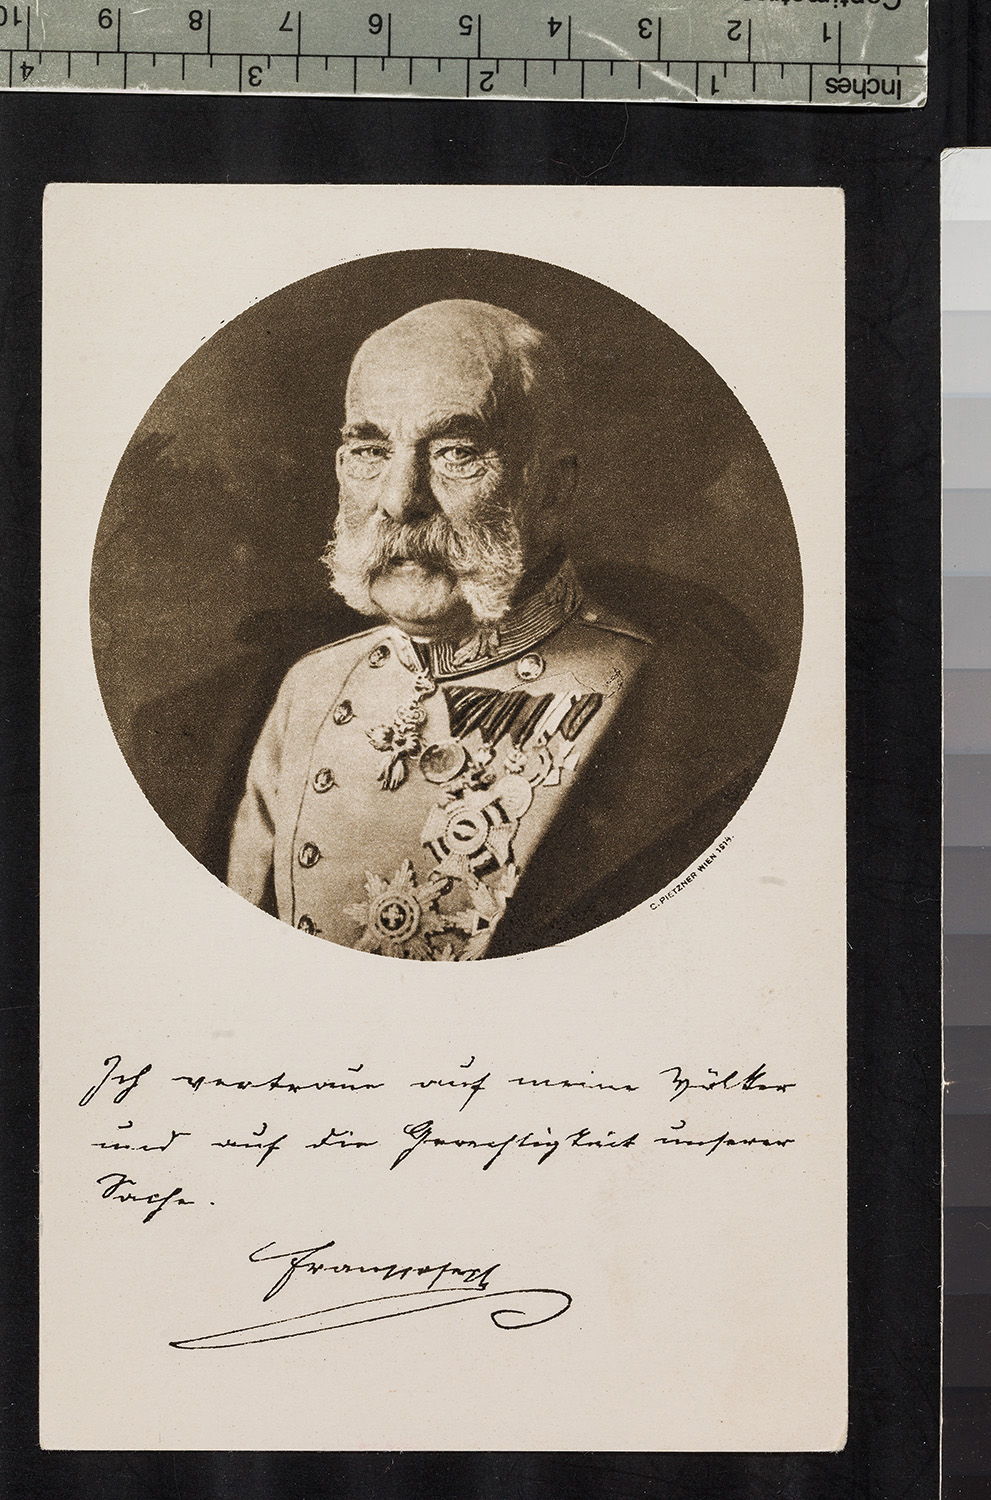 Centimetres
1 2 3 4 5 6 7 8 9 10
Inches
1 2 3 4
C. PIETZNER WIEN 1914.
Ich vertraue auf meine Völker
und auf die Gerechtigkeit unserer
Sache.
Franz Joseph